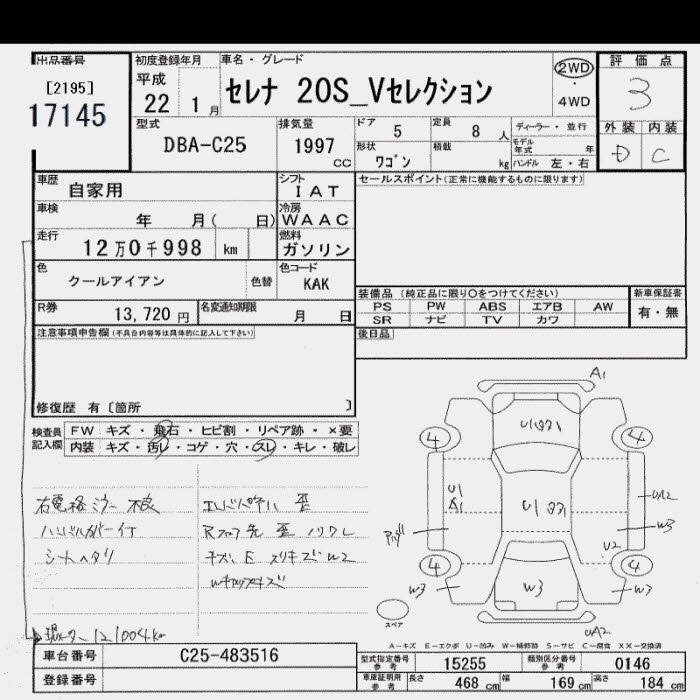 出品番号
[2195]
17145
初度登録年月
平成
22 1 月
車名・グレード
セレナ 20S_Vセレクション
2WD
・
4WD
評価点
3
外装 内装
D C
型式
DBA-C25
排気量
1997
CC
ドア
5
定員
8 人
ディーラー・並行
モデル
年式
年
形状
ワゴン
積載
kg
ハンドル 左・右
車歴
自家用
シフト
IAT
セールスポイント(正常に機能するものに限ります)
車検
年 月( 日)
冷房
WAAC
走行
12万0千998 km
燃料
ガソリン
色
クールアイアン
色替
色コード
KAK
装備品 (純正品に限り○をつけてください)
PS PW ABS エアB AW
SR ナビ TV カワ
新車保証書
有・無
R券
13,720 円
名変通知期限
月 日
後日品
注意事項申告欄(不具合内容等は具体的に記入して下さい)
修復歴 有〔箇所 〕
検査員
記入欄
FW キズ・飛石・ヒビ割・リペア跡・×要
内装 キズ・汚レ・コゲ・穴・スレ・キレ・破レ
右電格ミラー 不良
ハンドルカバー付
シートヘタリ
歪
Rフロア先 歪
キズ、E スリキズ W2
Wキャップキズ
現メーター 121004km
A1
4
4
U1
A1
UA2
W3
U2
4
4
W3
W3
W3
UA2
スペア
A－キズ E－エクボ U－凹み W－補修跡 S－サビ C－腐食 XX－交換済
車台番号
C25-483516
登録番号
型式指定番号
参考
15255
類別区分番号
参考
0146
車庫証明用
参考
長さ
468 cm
幅
169 cm
高さ
184 cm